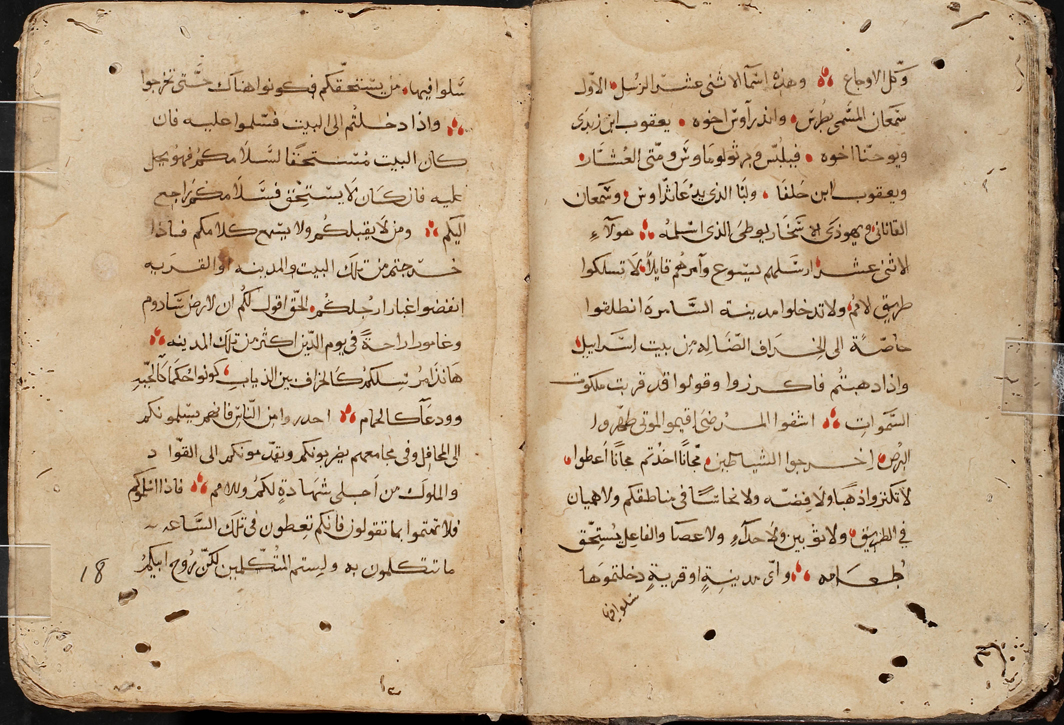 وكل الاوجاع وهذه اسما الاثنى عشر الرسل الاول
سمعان المسمى بطرس واندرآوس اخوه يعقوب ابن زبدى
ويوحنا اخوه فيلبس وبرثولوماوس ومتى العشار
ويعقوب ابن حلفا ولبا الذى يدعا تداوس وسمعان
القانانى ويهودى اسخاريوطى الذى اسلمه هولآءِ
الاثنى عشر ارسلهم يسوع وآمرهم قايلاً لا تسلكوا
طريق الامم ولا تدخلوا مدينة السامرة انطلقوا
خاصّة الى الخراف الضاله من بيت اسرايل
واذا ذهبتم فاكرزوا وقولوا قد قربت ملكوت
السموات اشفوا المرضىَ اقيموا الموتى طهروا
البرص اخرجوا الشياطين مجانًا اخذتم مجانًا أعطوا
لا تكنزوا ذهبا ولا فضه ولا نحاسًا فى مناطقكم ولا هميان
في الطريق ولا ثوبين ولا حدآء ولا عصا والفاعل يستحق
طعامه واى مدينةٍ او قريةٍ دخلتموها
سلوا فيها
سَلوا فيها من يستحقكم فكونوا هناك حتى تخرجوا
واذا دخلتم الى البيت فسلموا عليه فان
كان البيت مُستحقًا لسلامكم فهو يحل
عليه فان كان لا يستحق فسلامكم راجع
اليكم ومن لا يقبلكم ولا يسمع كلامكم فاذا
خرجتم من تلك البيت والمدينه او القريه
انفضوا غبار ارجلكم الحق اقول لكم ان لارض سادوم
وغامورا راحةً فى يوم الدّين اكثر من تلك المدينه
هانذا مرسلكم كالخراف بين الذياب كونوا حكما كالحيّهِ
وودعآ كالحمام احدروا من النّاس فانهم يسلمونكم
الى المحافل وفى مجامعهم يضربونكم ويقدمونكم الى القواد
والملوك من اجلى شهادةٍ لكم وللامم فاذا اسلموكم
فلا تهتموا بما تقولون فانكم تعطون فى تلك الساعه
ما تتكلمون به ولستم المُتكلمين لكنّ رُوح ابيكم
18